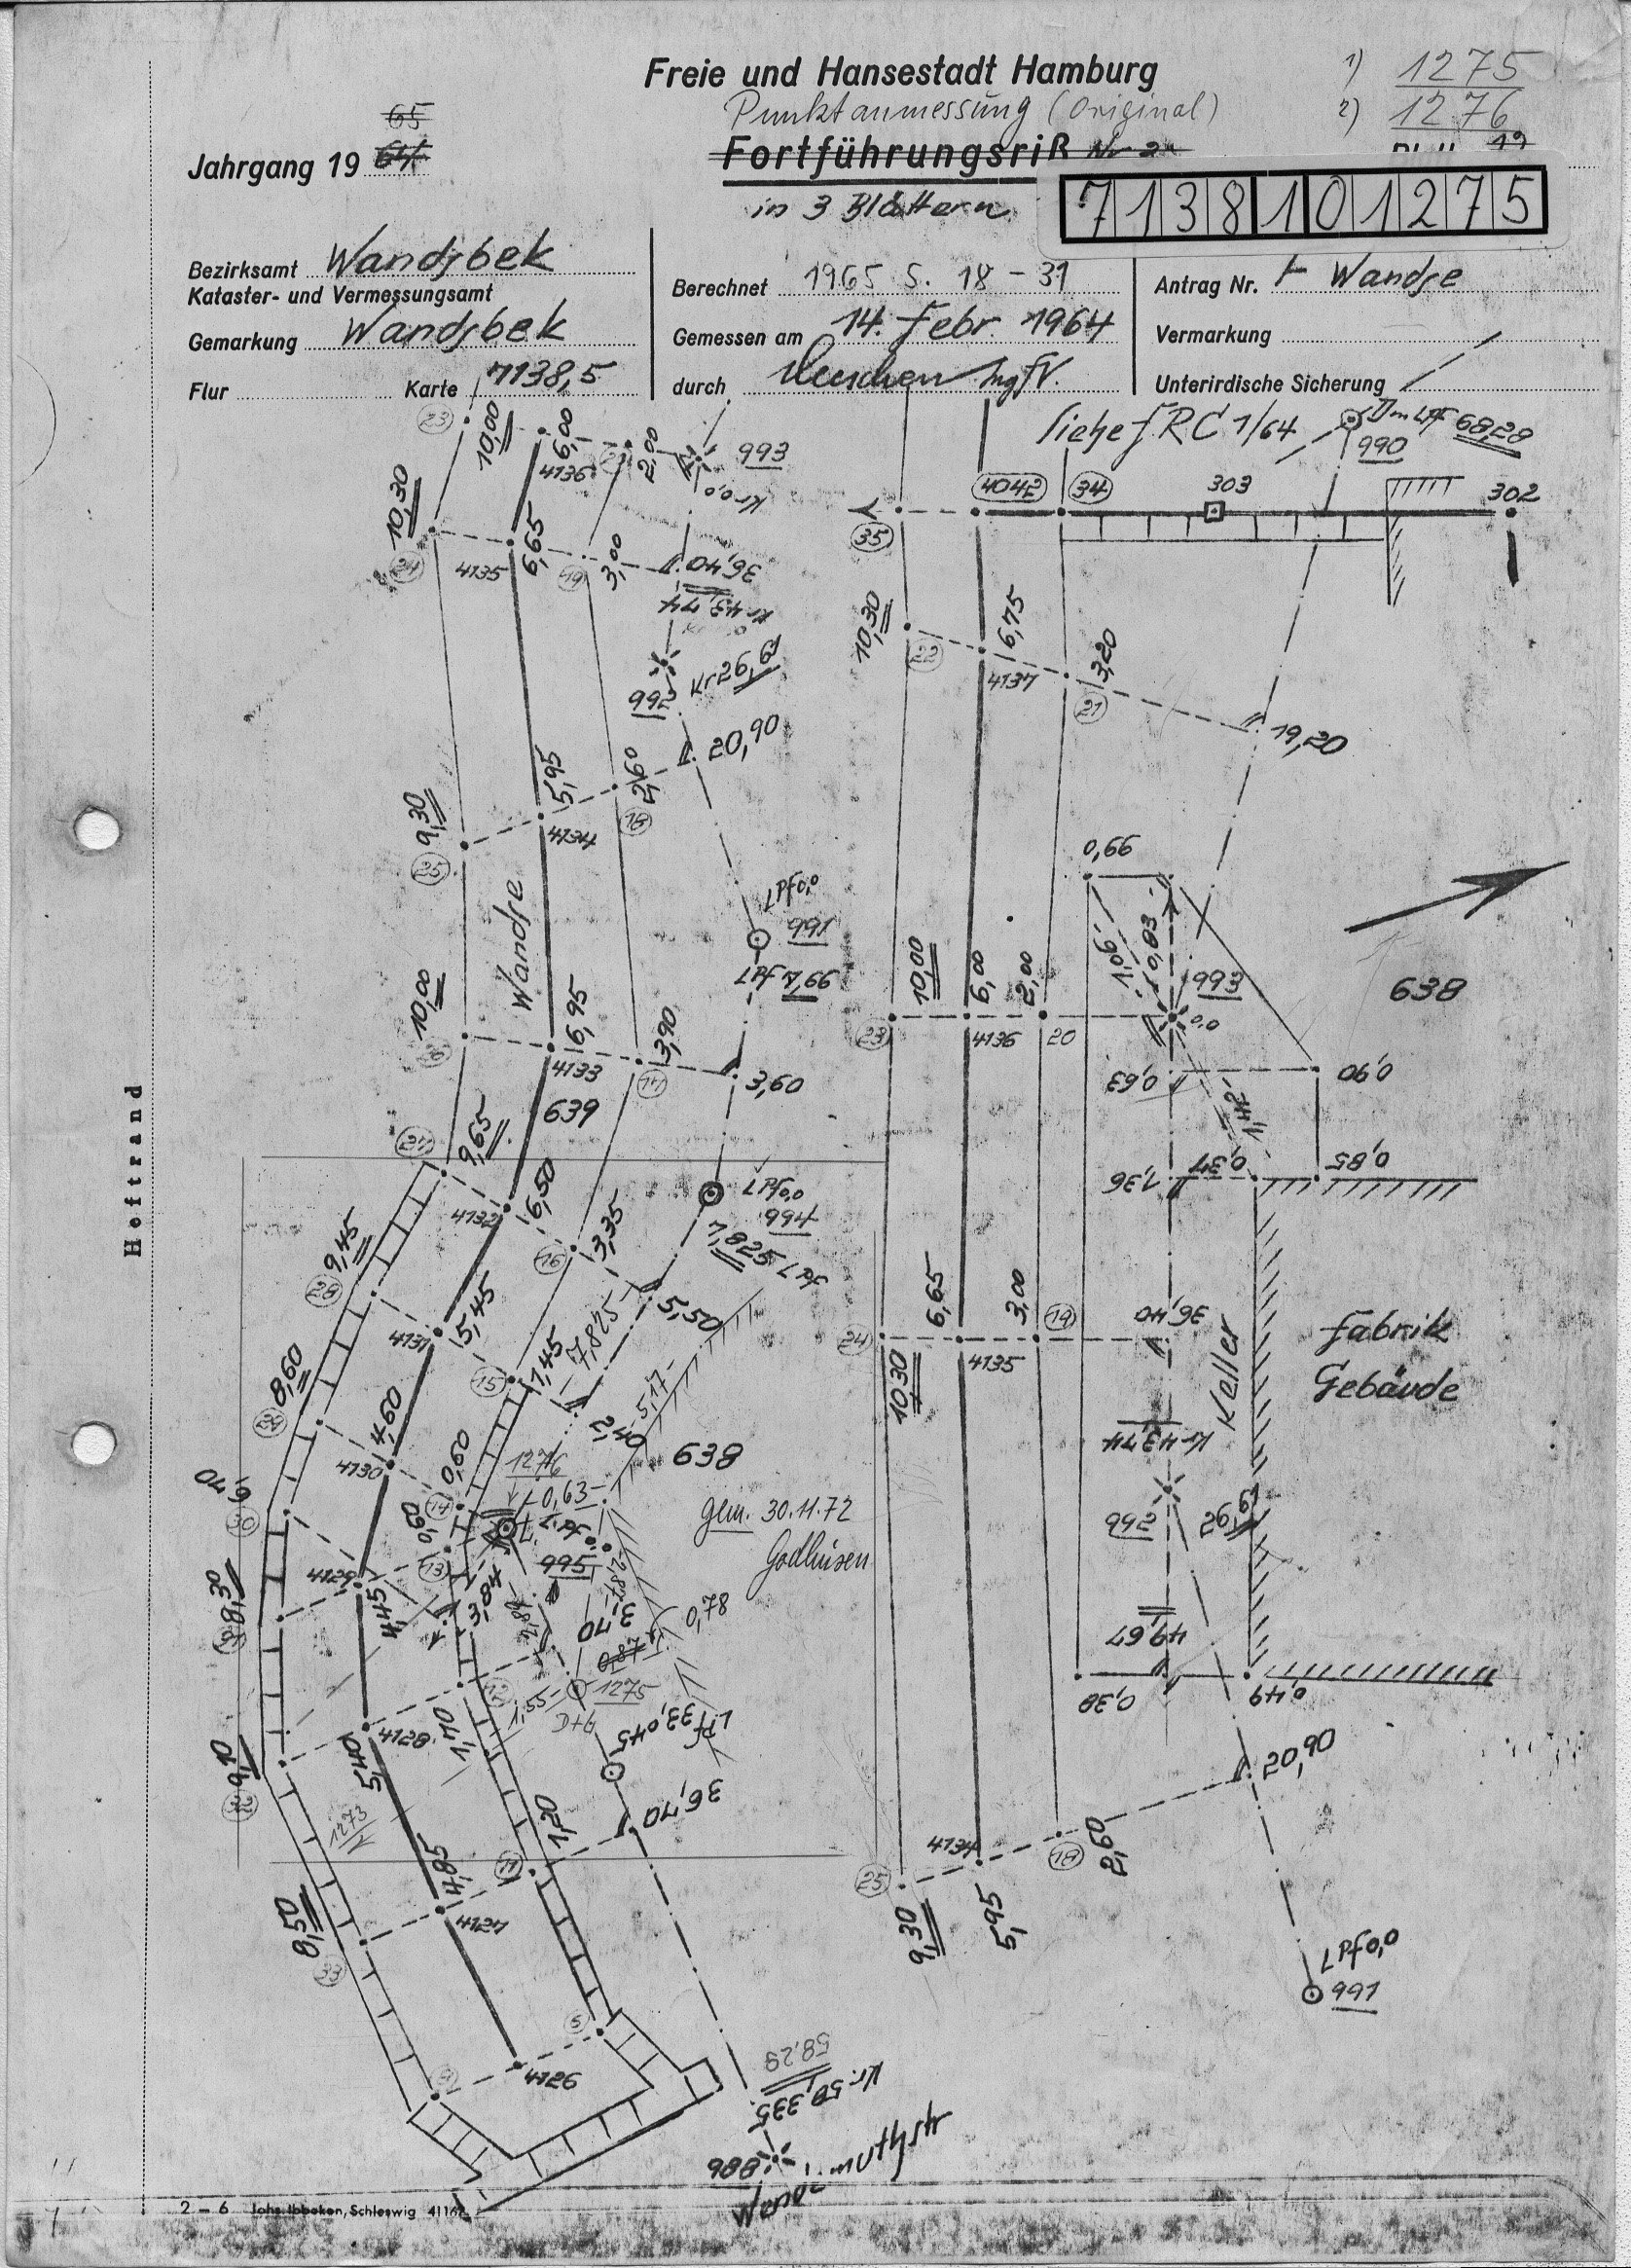 Freie und Hansestadt Hamburg
1) 1275
Punktanmessung (Original)
2) 1276
65
Jahrgang 19 64
Fortführungsriß Nr 2
19
in 3 Blättern
7138101275
Bezirksamt Wandsbek
Kataster- und Vermessungsamt
Gemarkung Wandsbek
Flur Karte 7138,5
Berechnet 1965 S. 18 - 31
Gemessen am 14. Febr. 1964
durch
Antrag Nr. Wandse
Vermarkung
Unterirdische Sicherung
siehe f. R C 1/64
68,28
990
23
10,00
6,00
4136
2,00
993
Kr 0,0
10,30
24
4135
6,65
19
3,00
36,40
Kr 43,74
992
Kr 26,61
20,90
9,30
25
5,95
4134
2,60
18
Wandse
LPf 0,0
991
LPf 7,66
10,00
26
6,95
4133
3,90
17
3,60
639
27
9,65
4132
6,50
16
3,35
LPf 0,0
994
7,825 LPf
5,50
9,45
28
4131
5,45
15
1,45
7,825
2,40
5,17
638
8,60
29
4130
4,60
14
0,60
1276
0,63
gem. 30.11.72
Godhusen
6,70
30
4129
0,80
13
995
8,30
4,45
3,84
2,87
3,70
0,78
0,87
12
1,55
1275
D+G
LPf 33,045
9,10
32
4128
5,40
1,70
1273
36,70
8,50
33
4,85
4127
11
1,20
5
4126
58,29
Kr. 58,335
988
35
4042
34
303
302
10,30
22
6,75
4137
3,20
21
19,20
0,66
1,06
0,83
993
0,0
638
10,00
23
6,00
4136
2,00
20
0,63
0,90
1,42
1,36
0,37
0,85
6,65
24
10,30
4135
3,00
19
36,40
Keller
Fabrik
Gebäude
Kr 43,74
992
26,61
49,67
0,38
0,49
20,90
4134
18
2,60
25
9,30
5,95
LPf 0,0
991
Heftrand
2 – 6 Johs. Ibbeken, Schleswig